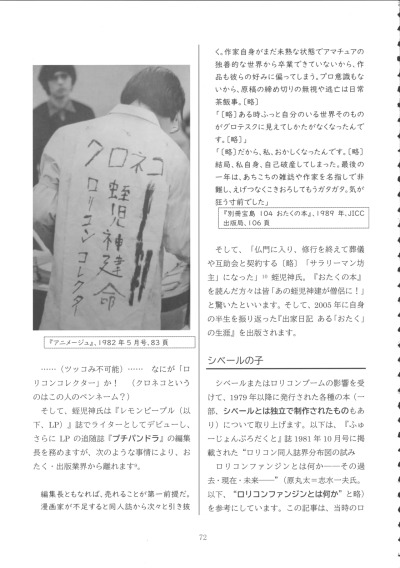 クロネコ
蛭児神建命
ロリコンコレクタ
『アニメージュ』、1982年5月号、83頁
……（ツッコみ不可能）…… なにが「ロ
リコンコレクター」か！ （クロネコという
のはこの人のペンネーム？）
そして、蛭児神氏は『レモンピープル（以
下、LP）』誌でライターとしてデビューし、
さらに LP の追随誌『プチパンドラ』の編集
長を務めますが、次のような事情により、お
たく・出版業界から離れます⁹。
編集長ともなれば、売れることが第一前提だ。
漫画家が不足すると同人誌から次々と引き抜
く。作家自身がまだ未熟な状態でアマチュアの
独善的な世界から卒業できていないから、作
品も彼らの好みに偏ってしまう。プロ意識もな
いから、原稿の締め切りの無視や逃亡は日常
茶飯事。［略］
「［略］ある時ふっと自分のいる世界そのもの
がグロテスクに見えてしかたがなくなったんで
す。［略］」
「［略］だから、私、おかしくなったんです。［略］
結局、私自身、自己破産してしまった。最後の
一年は、あちこちの雑誌や作家を名指しで非
難し、えげつなくこきおろしてもうガタガタ。気が
狂う寸前でした」
『別冊宝島 104 おたくの本』、1989 年、JICC
出版局、106 頁
そして、「仏門に入り、修行を終えて葬儀
や互助会と契約する［略］「サラリーマン坊
主」になった」¹⁰ 蛭児神氏。『おたくの本』
を読んだ方々は皆「あの蛭児神建が僧侶に！」
と驚いたといいます。そして、2005 年に自身
の半生を振り返った『出家日記 ある「おたく」
の生涯』を出版されます。
シベールの子
シベールまたはロリコンブームの影響を受
けて、1979 年以降に発行された各種の本（一
部、シベールとは独立で制作されたものもあ
り）について取り上げます。以下は、『ふゅ
ーじょんぷろだくと』誌 1981 年 10 月号に掲
載された“ロリコン同人誌界分布図の試み
ロリコンファンジンとは何か――その過
去・現在・未来――”（原丸太＝志水一夫氏。
以下、“ロリコンファンジンとは何か”と略）
を参考にしています。この記事は、当時のロ
72